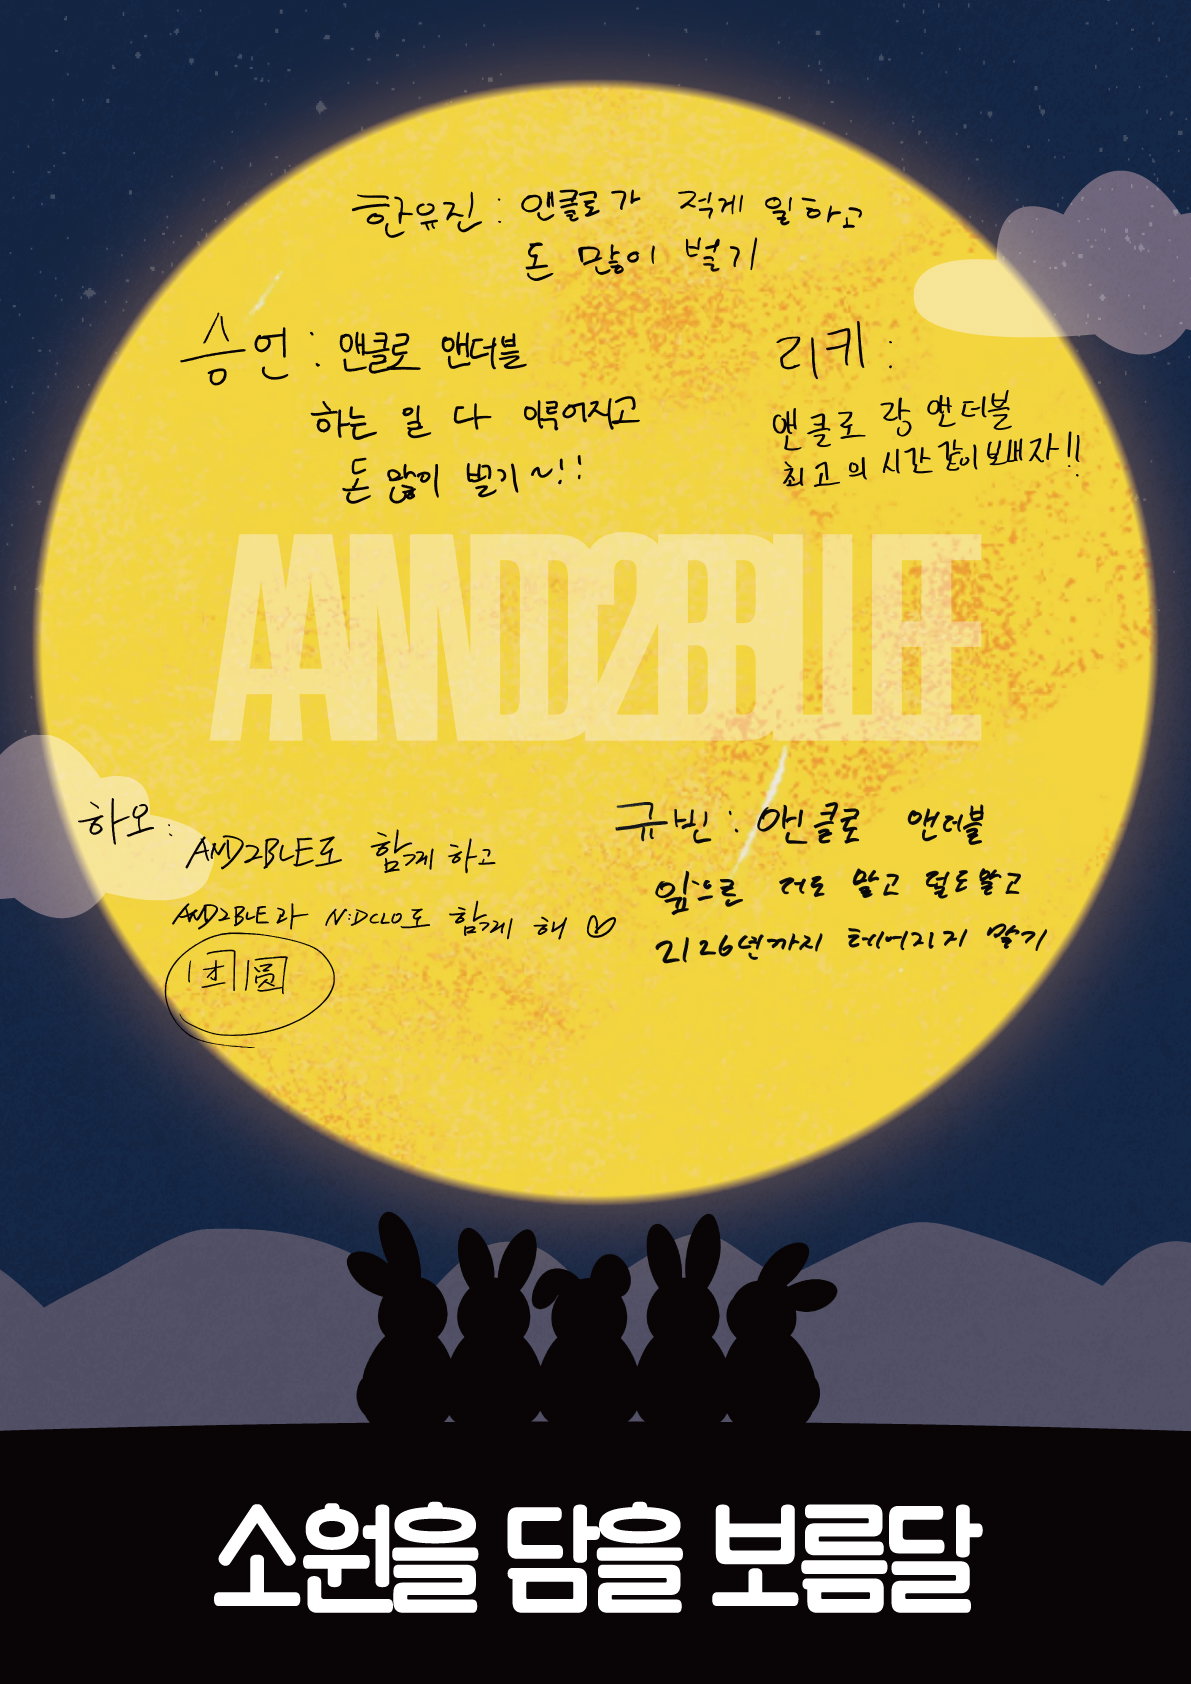 한유진 : 앤클로가 적게 일하고
돈 많이 벌기
승언 : 앤클로 앤더블
하는 일 다 이루어지고
돈 많이 벌기~!!
리키 :
앤클로랑 앤더블
최고의 시간 같이 보내자!!
AND2BLE
하오 :
AND2BLE로 함께 하고
AND2BLE과 N:DCLO도 함께 해 ♡
团圆
규빈 : 앤클로 앤더블
앞으론 더도 말고 덜도 말고
2126년까지 헤어지지 말기
소원을 담을 보름달